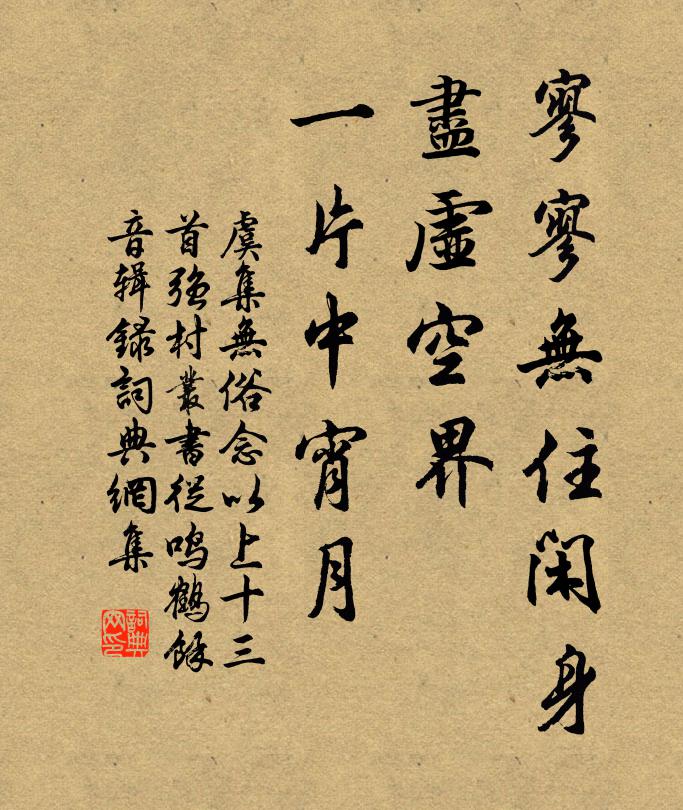 寥寥無住閑身
盡虛空界
一片中宵月
虞集無俗念以上十三
首強村叢書從鳴鶴餘
音輯錄詞典網集
詞典
网印